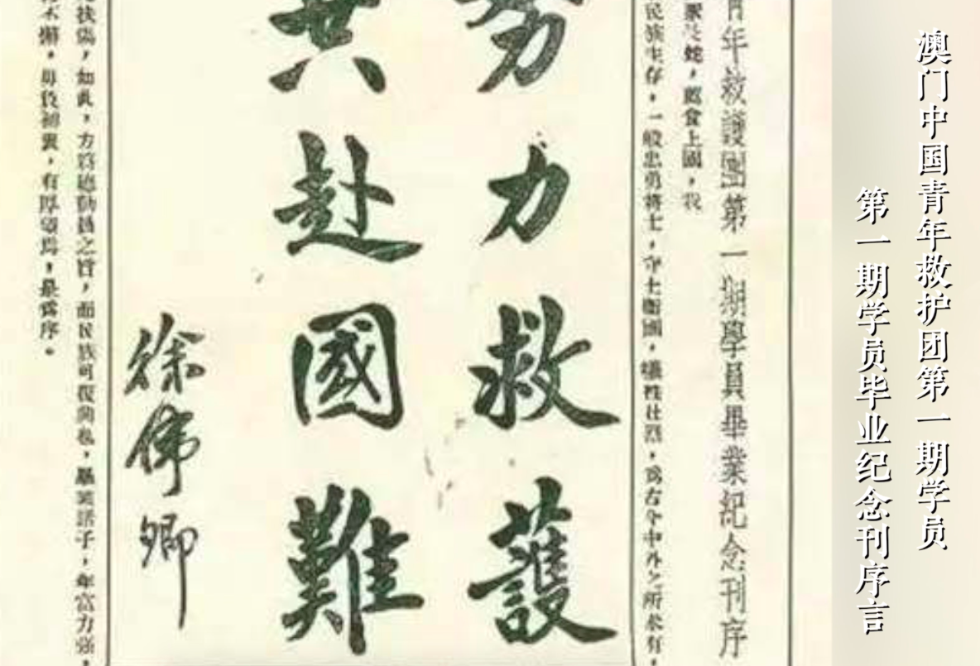 澳门中国青年救护团第一期学员
第一期学员毕业纪念刊序言
青年救護團第一期學員畢業紀念刊序
蛇，荐食上國，我
民族生存，一般忠勇將士，守土衛國，犧牲壯烈，為古今中外之所未有，
努力救護
共赴國難
徐偉卿
扶傷，如此，方為總動員之旨，而民族可復興也，畢業諸子，年富力強，
不懈，毋負初衷，有厚望焉，是為序。